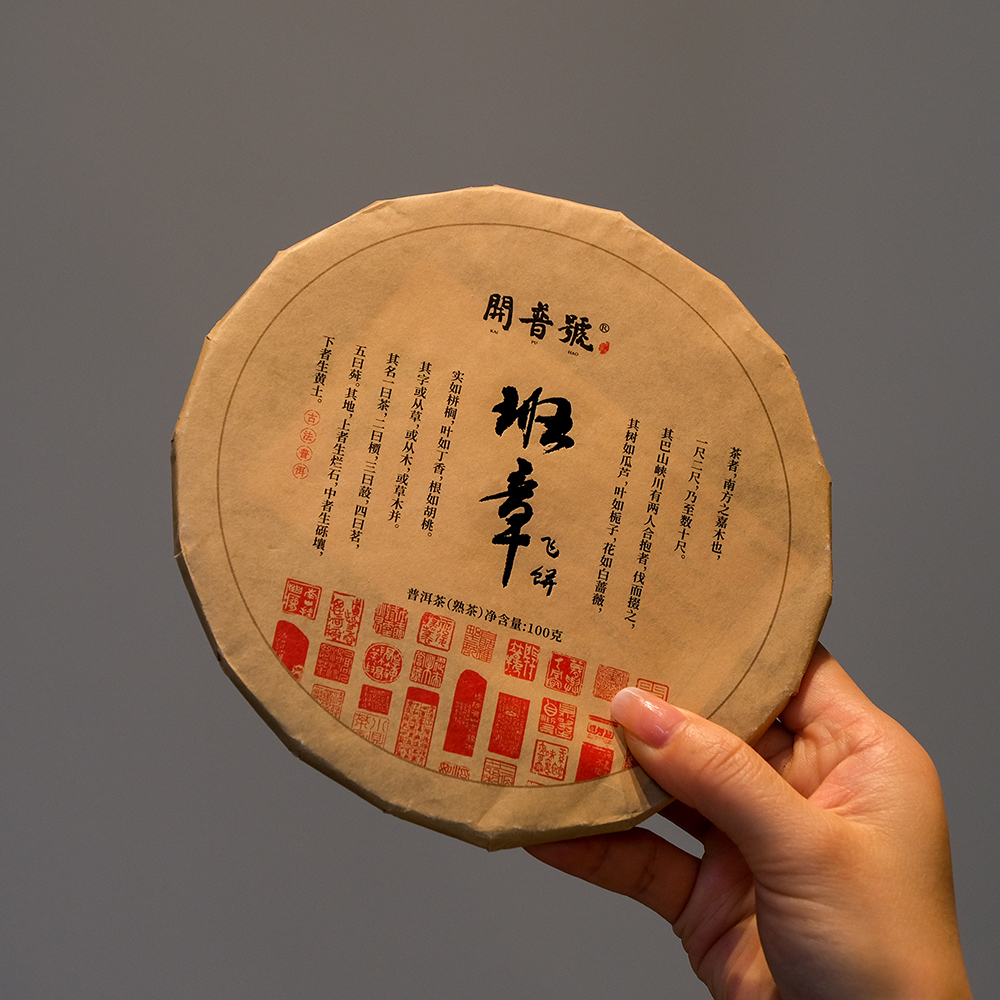 開普號®
KAI PU HAO
班章
飞饼
茶者，南方之嘉木也，
一尺二尺，乃至数十尺。
其巴山峡川有两人合抱者，伐而掇之，
其树如瓜芦，叶如栀子，花如白蔷薇，
实如栟榈，叶如丁香，根如胡桃。
其字或从草，或从木，或草木并。
其名一曰茶，二曰槚，三曰蔎，四曰茗，
五曰荈。其地，上者生烂石，中者生砾壤，
下者生黄土。
古法貴洱
普洱茶(熟茶)净含量:100克